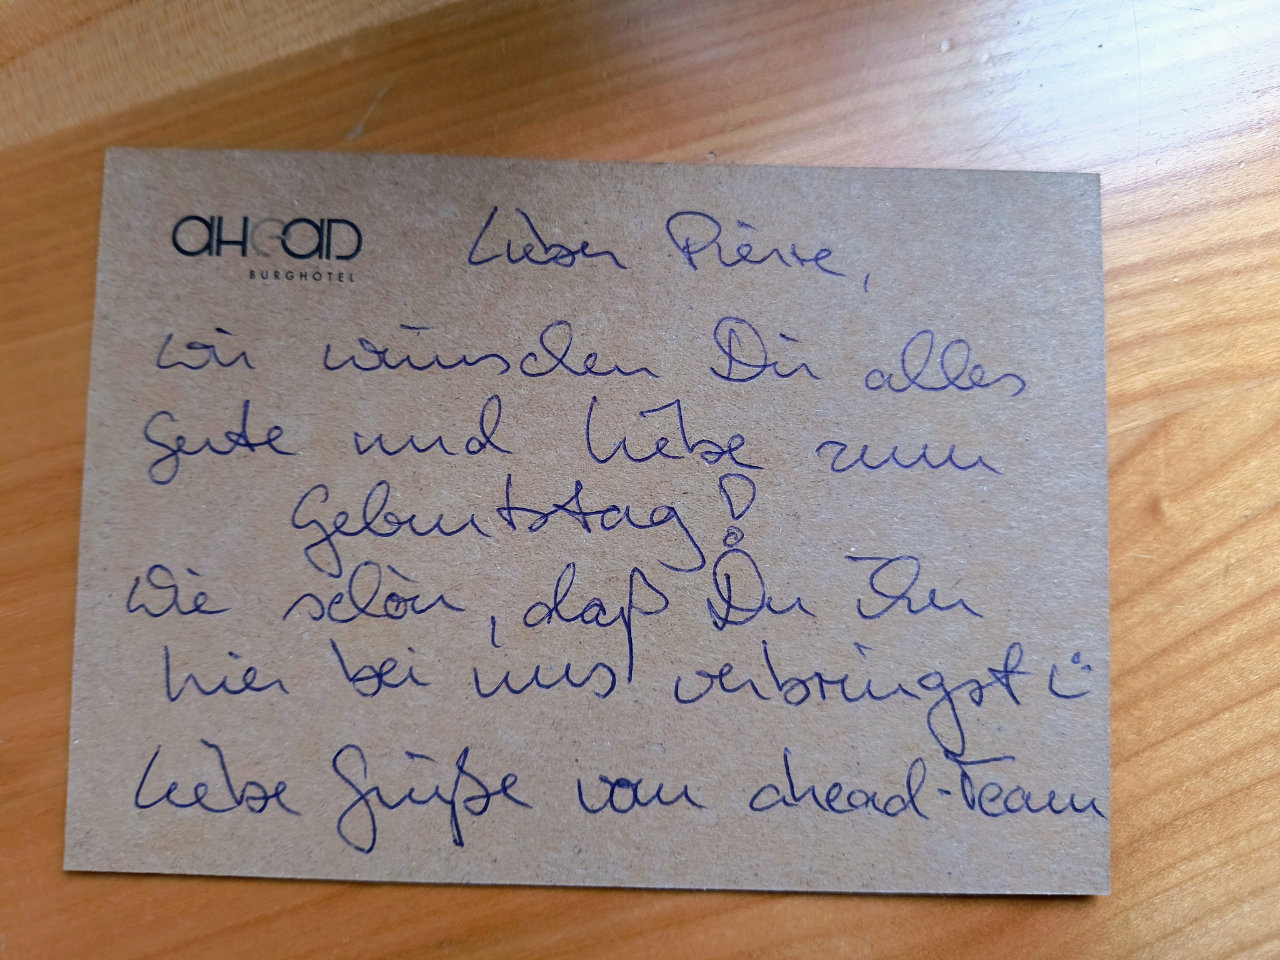 aHeaD
BURGHOTEL
Lieber Pierre,
wir wünschen Dir alles
Gute und Liebe zum
Geburtstag!
Wie schön, daß Du ihn
hier bei uns verbringst
Liebe Grüße vom ahead-Team